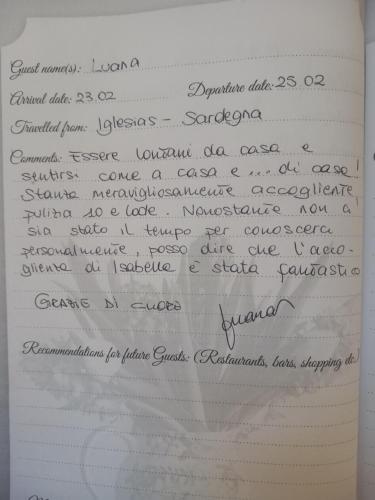 Guest name(s): Luana
Arrival date: 23.02
Departure date: 25.02
Travelled from: Iglesias - Sardegna
Comments: Essere lontani da casa e
sentirsi come a casa e ... di casa!
Stanza meravigliosamente accogliente
pulizia 10 e lode. Nonostante non ci
sia stato il tempo per conoscerci
personalmente, posso dire che l'acco-
glienza di Isabella è stata fantastica
GRAZIE DI CUORE
Luana
Recommendations for future Guests: (Restaurants, bars, shopping etc.)